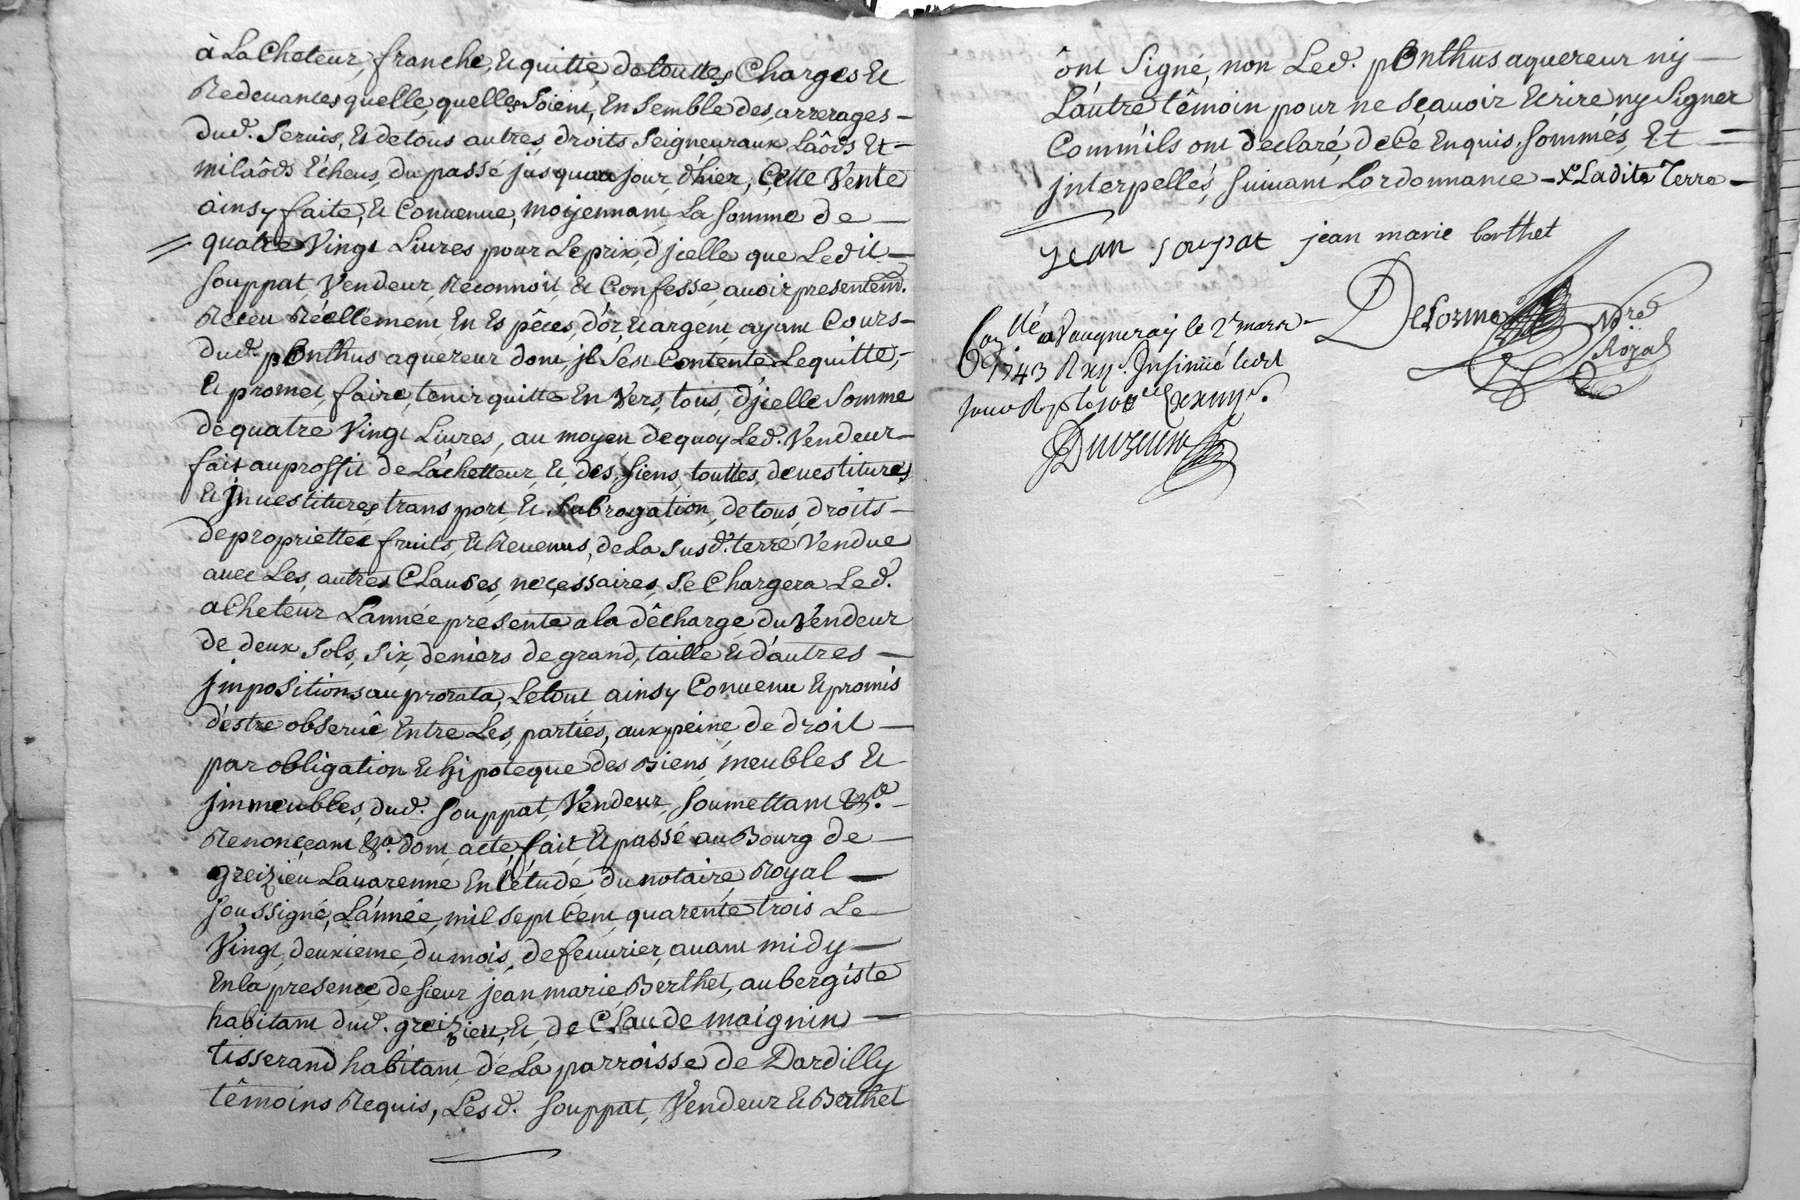 à La Cheteur, franche, Et quitte, de touttes Charges Et
Redeuances quelle, quelles Soient, En Semble des, arrerages
dud. Seruis, Et de tous autres, droits Seigneuraux Lâods Et
milâods Echeus, du passé jusquau jour, d'hier, Cette Vente
ainsy faite, Et Conuenue, moÿennant La Somme de
quatre Vingt Liures pour Le prix, d'jcelle que Ledit
Souppat, Vendeur, Reconnoit, Et Confesse, auoir presentemt.
Receu Réellement En Espêces, d'or Et argent, ayant Cours
dud. ponthus aquereur dont, jl Sest Contente Lequitte,
Et promet, faire, tenir quitte En Vers, tous, d'jcelle Somme
de quatre Vingt Liures, au moyen dequoy Led. Vendeur
fait au proffit de Láchetteur, Et, des, Siens, touttes, deuestitures
Et jnuestitures, transport, Et Subrogation, de tous, droits
de propriettes fruits, Et Reuenus, de La Susd. terre Vendue
auec Les, autres Clauses, necessaires, Se Chargera Led.
acheteur L'année presente a la dêcharge du Vendeur
de deux Sols, Six, deniers de grand, taille Et d'autres
jmpositions au prorata, Letout ainsy Conuenu Et promis
d'estre obserué Entre Les, parties, aux peine de droit
par obligation Et hipoteque des Biens, meubles Et
jmmeubles, dud. Souppat, Vendeur, Soumettant
Renonçant &a. dont acte, fait Et passé au Bourg de
greizieu Lauarenne En l'étude, du notaire Royal
Soussigné, L'année, mil Sept Cent, quarente trois Le
Vingt, deuxieme, du mois, de feuurier, auant midy
En la presence de Sieur jean marie Berthet, aubergiste
habitant dud. greizieu, Et, de Claude maignin
tisserand habitant de La parroisse de Dardilly
têmoins Requis, Lesd. Souppat, Vendeur Et Berthet
ônt Signé, non Led. ponthus aquereur ny
L'autre têmoin pour ne Sçauoir Ecrire ny Signer
Comm'ils ont declaré, de Ce Enquis, Sommés, Et
jnterpellés, Suiuant Lordonnance - X Ladite Terre
jean soupat jean marie berthet
Delorme Nre.
Royal
a Vaugneray le 2e mars
1743 Insinüé